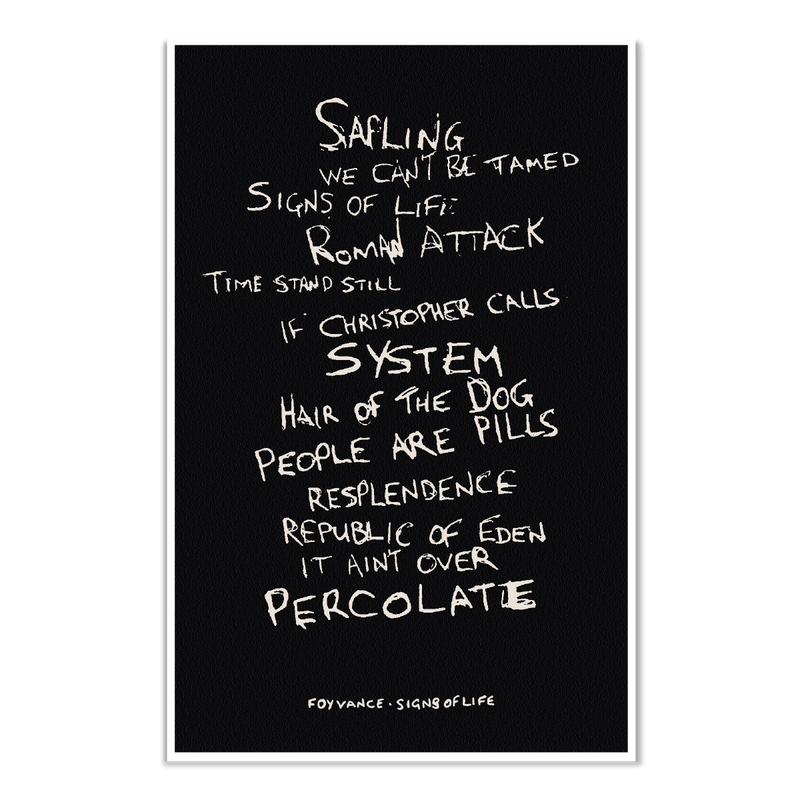 SAPLING
WE CAN'T BE TAMED
SIGNS OF LIFE
ROMAN ATTACK
TIME STAND STILL
IF CHRISTOPHER CALLS
SYSTEM
HAIR OF THE DOG
PEOPLE ARE PILLS
RESPLENDENCE
REPUBLIC OF EDEN
IT AIN'T OVER
PERCOLATE
FOY VANCE · SIGNS OF LIFE